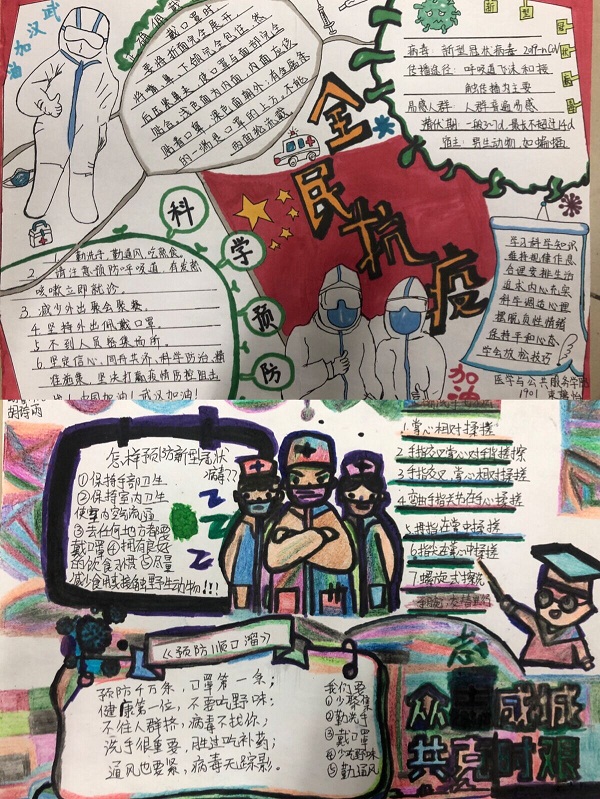 武汉
加油
正确佩戴
戴口罩时,
要将折面完全展开,
将嘴、鼻、下颌完全包住,然
后压紧鼻夹,使口罩与面部完全
贴合,浅色面为内面,内面应该
贴着口罩,深色面朝外;有金属条
的一端是口罩的上方,不能
两面轮流戴
新型
病毒:新型冠状病毒 2019-nCoV
传播途径:呼吸道飞沫和接
触传播为主要
易感人群:人群普遍易感
潜伏期:一般3~7d,最长不超过14d
宿主:野生动物,如蝙蝠
全民抗疫
科学预防
1. 勤洗手,勤通风,吃熟食。
2. 请注意预防呼吸道,有发热
咳嗽立即就诊
3. 减少外出聚会聚餐
4. 坚持外出佩戴口罩
5. 不到人员密集场所
6. 坚定信心,同舟共济,科学防治,精
准施策,坚决打赢疫情防控阻击
战!中国加油!武汉加油!
学习科学知识
维持规律作息
合理安排生活
追求内心充实
科学调适心理
摆脱负性情绪
保持平和心态
学会放松技巧
加油
医学与公共服务学院
1901
怎样预防新型冠状
病毒??
①保持手部卫生
②保持室内卫生
使室内空气流通
③去任何地方都要
戴口罩④拥有良好
的饮食习惯⑤尽量
减少食用或接触野生动物!!!
1.掌心相对揉搓
2.手指交叉掌心对手背揉擦
3.手指交叉,掌心相对揉搓
4.弯曲手指关节在掌心揉搓
5.拇指在掌中揉搓
6.指尖在掌心中揉搓
7.螺旋式擦洗
手腕,交替进行
《预防顺口溜》
预防千万条,口罩第一条;
健康第一位,不要吃野味;
不往人群挤,病毒不找你;
洗手很重要,胜过吃补药;
通风也要紧,病毒无踪影。
我们要
①少聚集
②勤洗手
③戴口罩
④少吃野味
⑤勤通风
众志成城
共克时艰